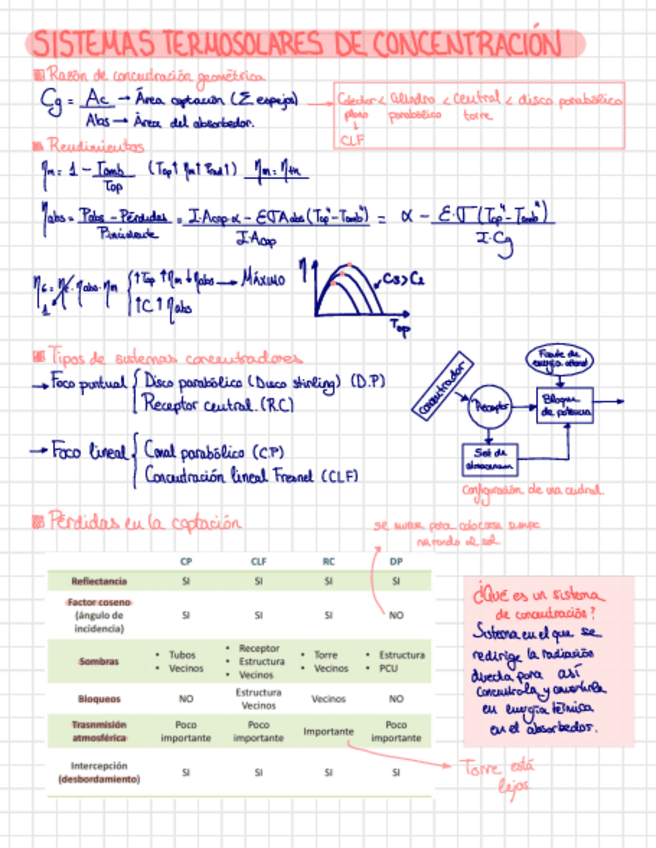 SISTEMAS TERMOSOLARES DE CONCENTRACIÓN
Razón de concentración geométrica
Cg = Ac → Área captación (Σ espejos)
Aabs → Área del absorbedor.
Colector < cilindro < central < disco parabólico
plano parabólico torre
↓
CLF
Rendimientos
ηm = 1 - Tamb / Top (Top↑ ηm↑ Prad↑) ηm = ηtm
ηabs = Pabs - Pérdidas / Pincidente = I·Acap·α - EσAabs (Top⁴ - Tamb⁴) / I·Acap = α - E·σ (Top⁴ - Tamb⁴) / I·Cg
ηG = ηabs·ηm
↑Top ↑ηm ↓ηabs → MÁXIMO
↑C ↑ηabs
η
C3 > C2
Top
Tipos de sistemas concentradores
→ Foco puntual
Disco parabólico (Disco stirling) (D.P)
Receptor central (RC)
→ Foco lineal
Canal parabólico (C.P)
Concentración lineal Fresnel (CLF)
Concentrador
Receptor
Fuente de energía
Bloque de potencia
Sist de almacenam
Configuración de una central
Pérdidas en la captación
se mueve para colocarse siempre
mirando al sol
CP CLF RC DP
Reflectancia SI SI SI SI
Factor coseno
(ángulo de
incidencia)
SI SI SI NO
Sombras
• Tubos
• Vecinos
• Receptor
• Estructura
• Vecinos
• Torre
• Vecinos
• Estructura
• PCU
Bloqueos NO Estructura Vecinos Vecinos NO
Trasnmisión
atmosférica
Poco importante Poco importante Importante Poco importante
Intercepción
(desbordamiento)
SI SI SI SI
Torre está
lejos
¿QUE es un sistema
de concentración?
Sistema en el que se
redirige la radiación
directa para así
concentrarla y convertirla
en energía térmica
en el absorbedor.